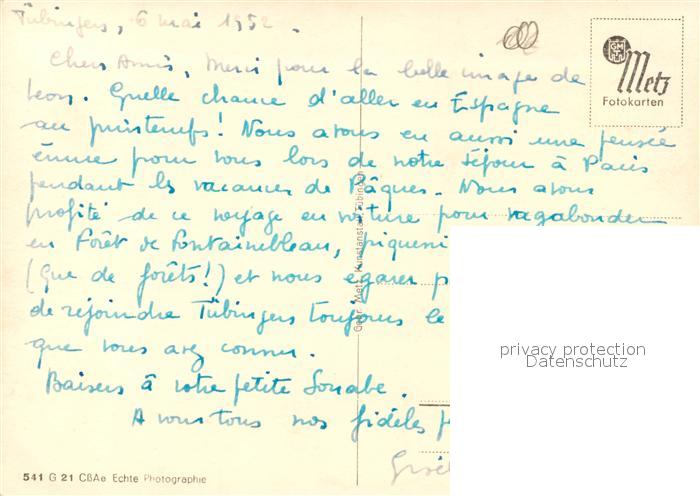 Tübingen, 6 mai 1952.
Chers Amis, Merci pour la belle image de
Leon. Quelle chance d'aller en Espagne
au printemps! Nous avons eu aussi une pensée
émue pour vous lors de notre séjour à Paris
pendant les vacances de Pâques. Nous avons
profité de ce voyage en voiture pour vagabonder
en Forêt de Fontainebleau,
(Que de forêts!) et nous égarer
de rejoindre Tübingen toujours le
que vous avez connu.
Baisers à votre petite Souabe.
A vous tous nos fidèles
GMT
Metz
Fotokarten
Gebr. Metz, Kunstanstalt, Tübingen
privacy protection
Datenschutz
541 G 21 CBAe Echte Photographie